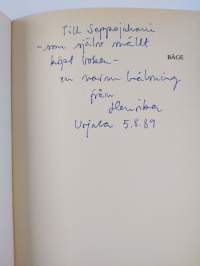 Till Seppojuhani
- som själv snällt
köpt boken -
BÅGE
en varm hälsning
från
Henrika
Urjala 5.8.89